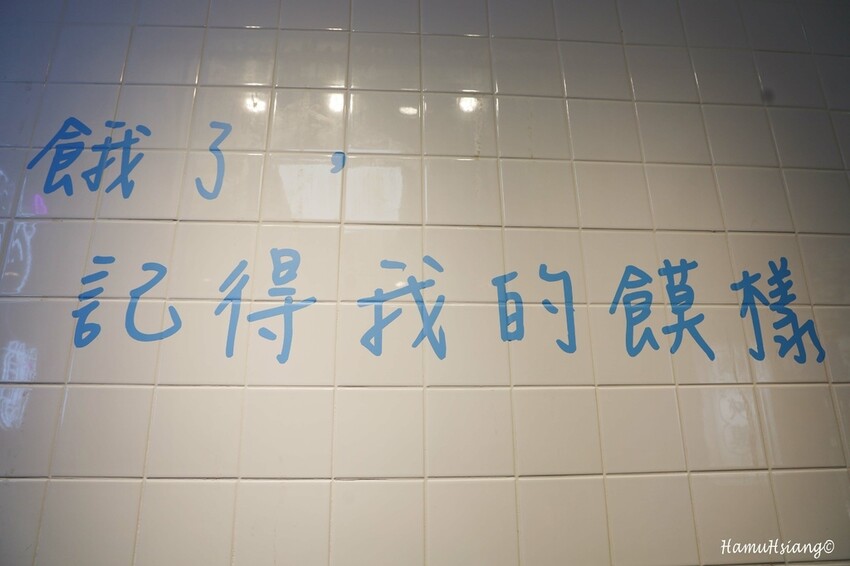 餓了，
記得我的饃樣
HamuHsiang©